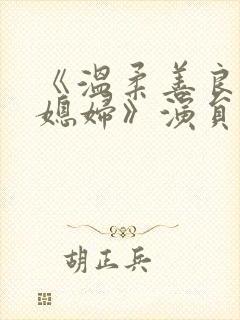 《温柔善良
媳妇》演员
胡正兵